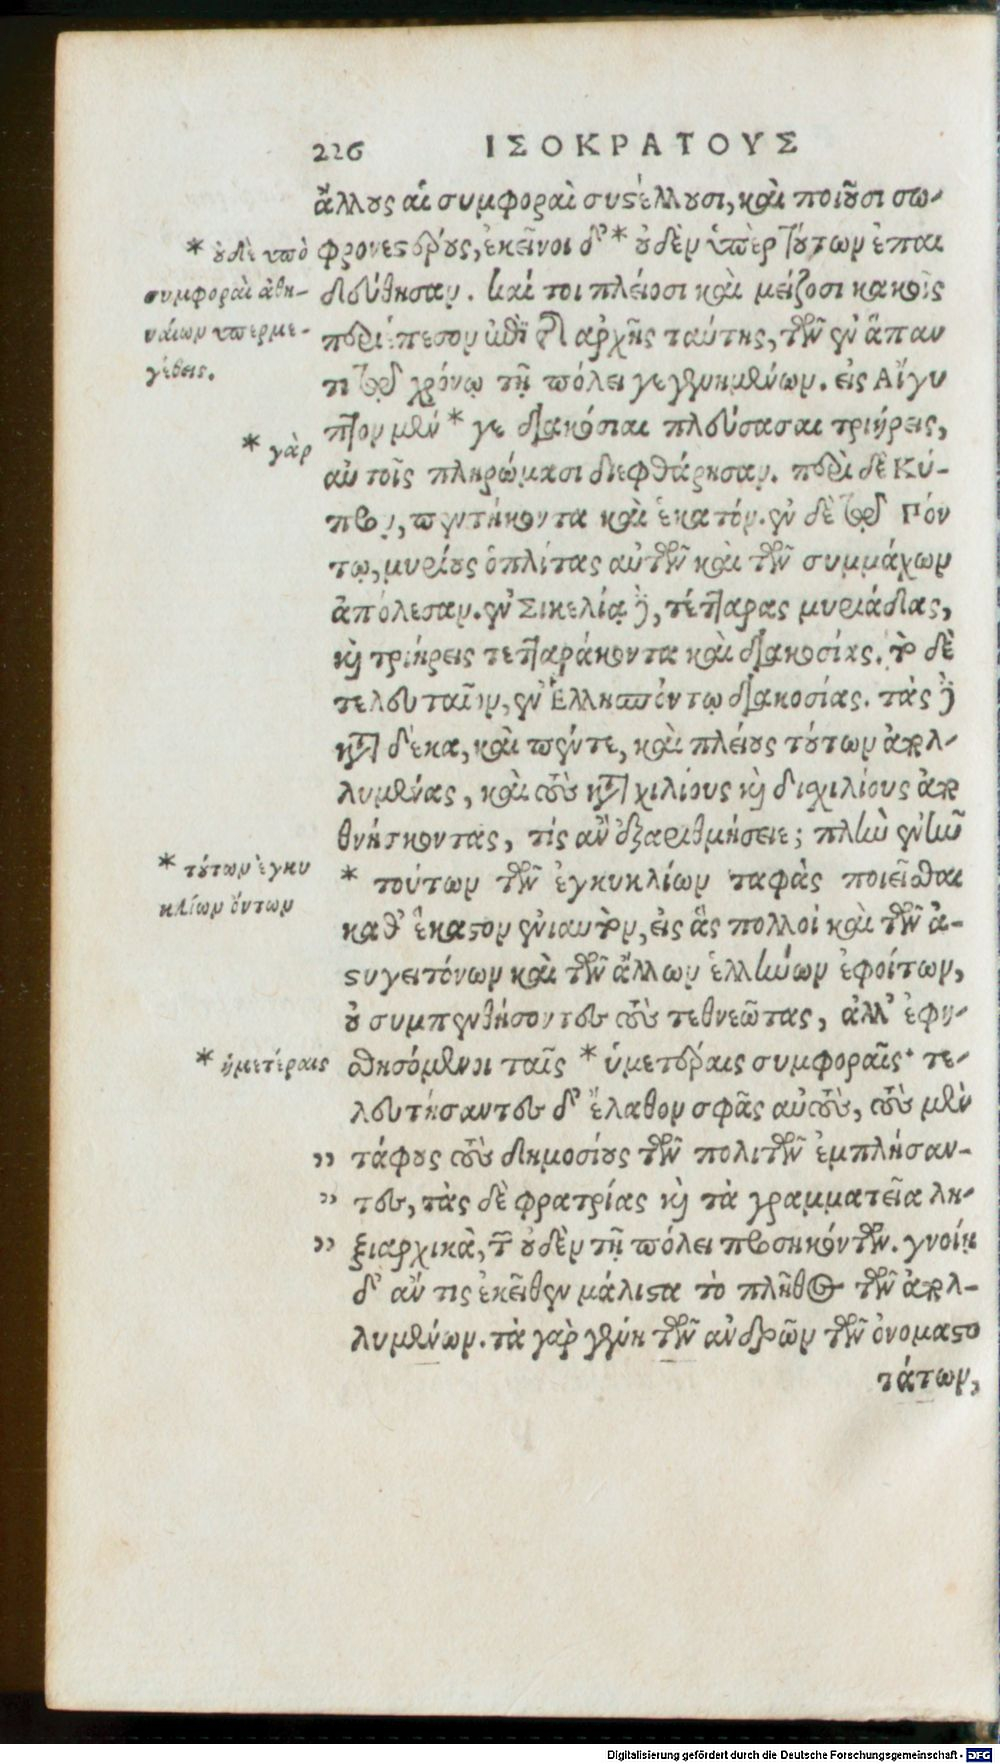 226 ΙΣΟΚΡΑΤΟΥΣ
ἄλλους αἱ συμφοραὶ συστέλλουσι, καὶ ποιοῦσι σω-
* οὐδὲ ὑπὸ
συμφορᾶι ἀθη-
ναίων ὑπερμε-
γέθεις.
φρονεστέρους, ἐκεῖνοι δ' * οὐδὲν ὑπὲρ τούτων ἐπαι
δεύθησαν. καί τοι πλείοσι καὶ μείζοσι κακοῖς
περιέπεσον ἐπὶ τῆς ἀρχῆς ταύτης, τῶν ἐν ἅπαν
τι τῷ χρόνῳ τῇ πόλει γεγενημένων. εἰς Αἴγυ
* γὰρ
πτον μέν * γε διακόσιαι πλεύσασαι τριήρεις,
αὐτοῖς πληρώμασι διεφθάρησαν. περὶ δὲ Κύ-
προν, πεντήκοντα καὶ ἑκατόν. ἐν δὲ τῷ Πόν
τῳ, μυρίους ὁπλίτας αὐτῶν καὶ τῶν συμμάχων
ἀπόλεσαν. ἐν Σικελίᾳ δὲ, τέτταρας μυριάδας,
καὶ τριήρεις τετταράκοντα καὶ διακοσίας. τὸ δὲ
τελευταῖον, ἐν Ἑλλησπόντῳ διακοσίας. τὰς δὲ
κατὰ δέκα, καὶ πέντε, καὶ πλείους τούτων ἀπολ-
λυμένας, καὶ τοὺς κατὰ χιλίους καὶ διχιλίους ἀπο
θνήσκοντας, τίς ἂν ἐξαριθμήσειε; πλὴν ἓν ἦν
* τούτων ἐγκυ
κλίων ὄντων
* τούτων τῶν ἐγκυκλίων ταφὰς ποιεῖσθαι
καθ' ἕκαστον ἐνιαυτὸν, εἰς ἃς πολλοὶ καὶ τῶν ἀ-
στυγειτόνων καὶ τῶν ἄλλων ἑλλήνων ἐφοίτων,
οὐ συμπενθήσοντες τοὺς τεθνεῶτας, ἀλλ' ἐφη-
* ἡμετέραις
σθησόμενοι ταῖς * ὑμετέραις συμφοραῖς· τε-
λευτήσαντες δ' ἔλαθον σφᾶς αὐτοὺς, τοὺς μὲν
,, τάφους τοὺς δημοσίους τῶν πολιτῶν ἐμπλήσαν-
,, τες, τὰς δὲ φρατρίας καὶ τὰ γραμματεῖα λη-
,, ξιαρχικὰ, τῶν οὐδὲν τῇ πόλει προσηκόντων. γνοίη
δ' ἄν τις ἐκεῖθεν μάλιστα τὸ πλῆθος τῶν ἀπολ-
λυμένων. τὰ γὰρ γένη τῶν ἀνδρῶν τῶν ὀνομαστο
τάτων,
Digitalisierung gefördert durch die Deutsche Forschungsgemeinschaft - DFG